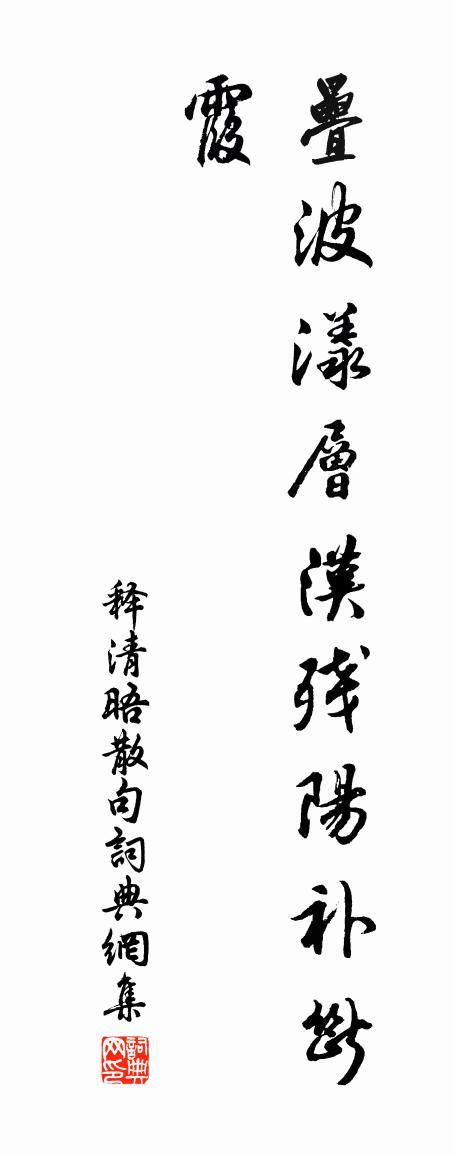 疊波漾層漢残陽补斷
霞
释清晤散句詞典網集
詞典网印